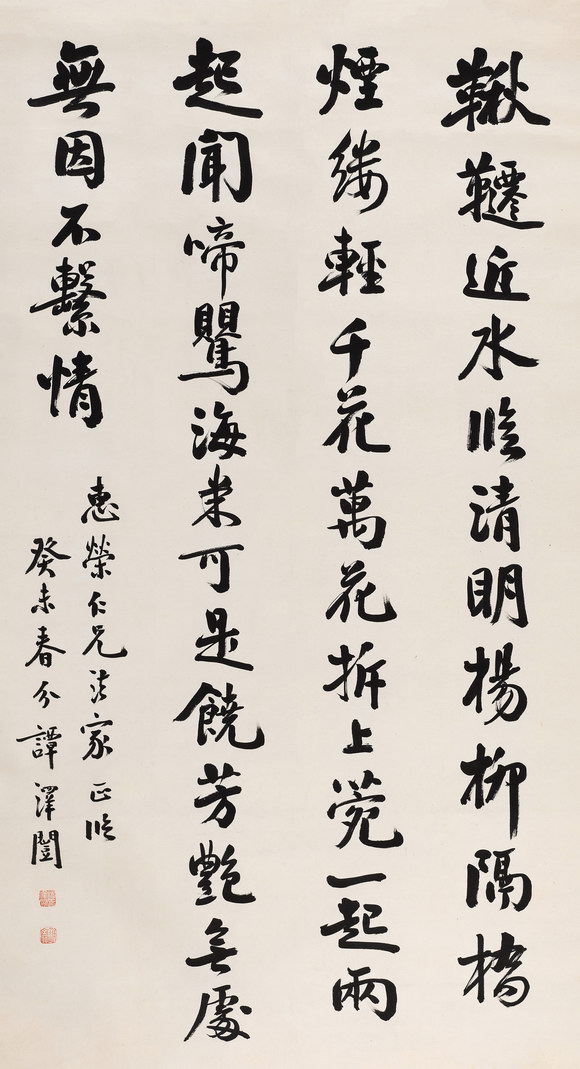 鞦韆近水臨清明楊柳隔橋
煙縷輕千花萬花拆上菀一起兩
起聞啼鸎海棠可是饒芳艷無處
無因不繫情
惠榮仁兄法家正臨
癸未春分譚澤闓